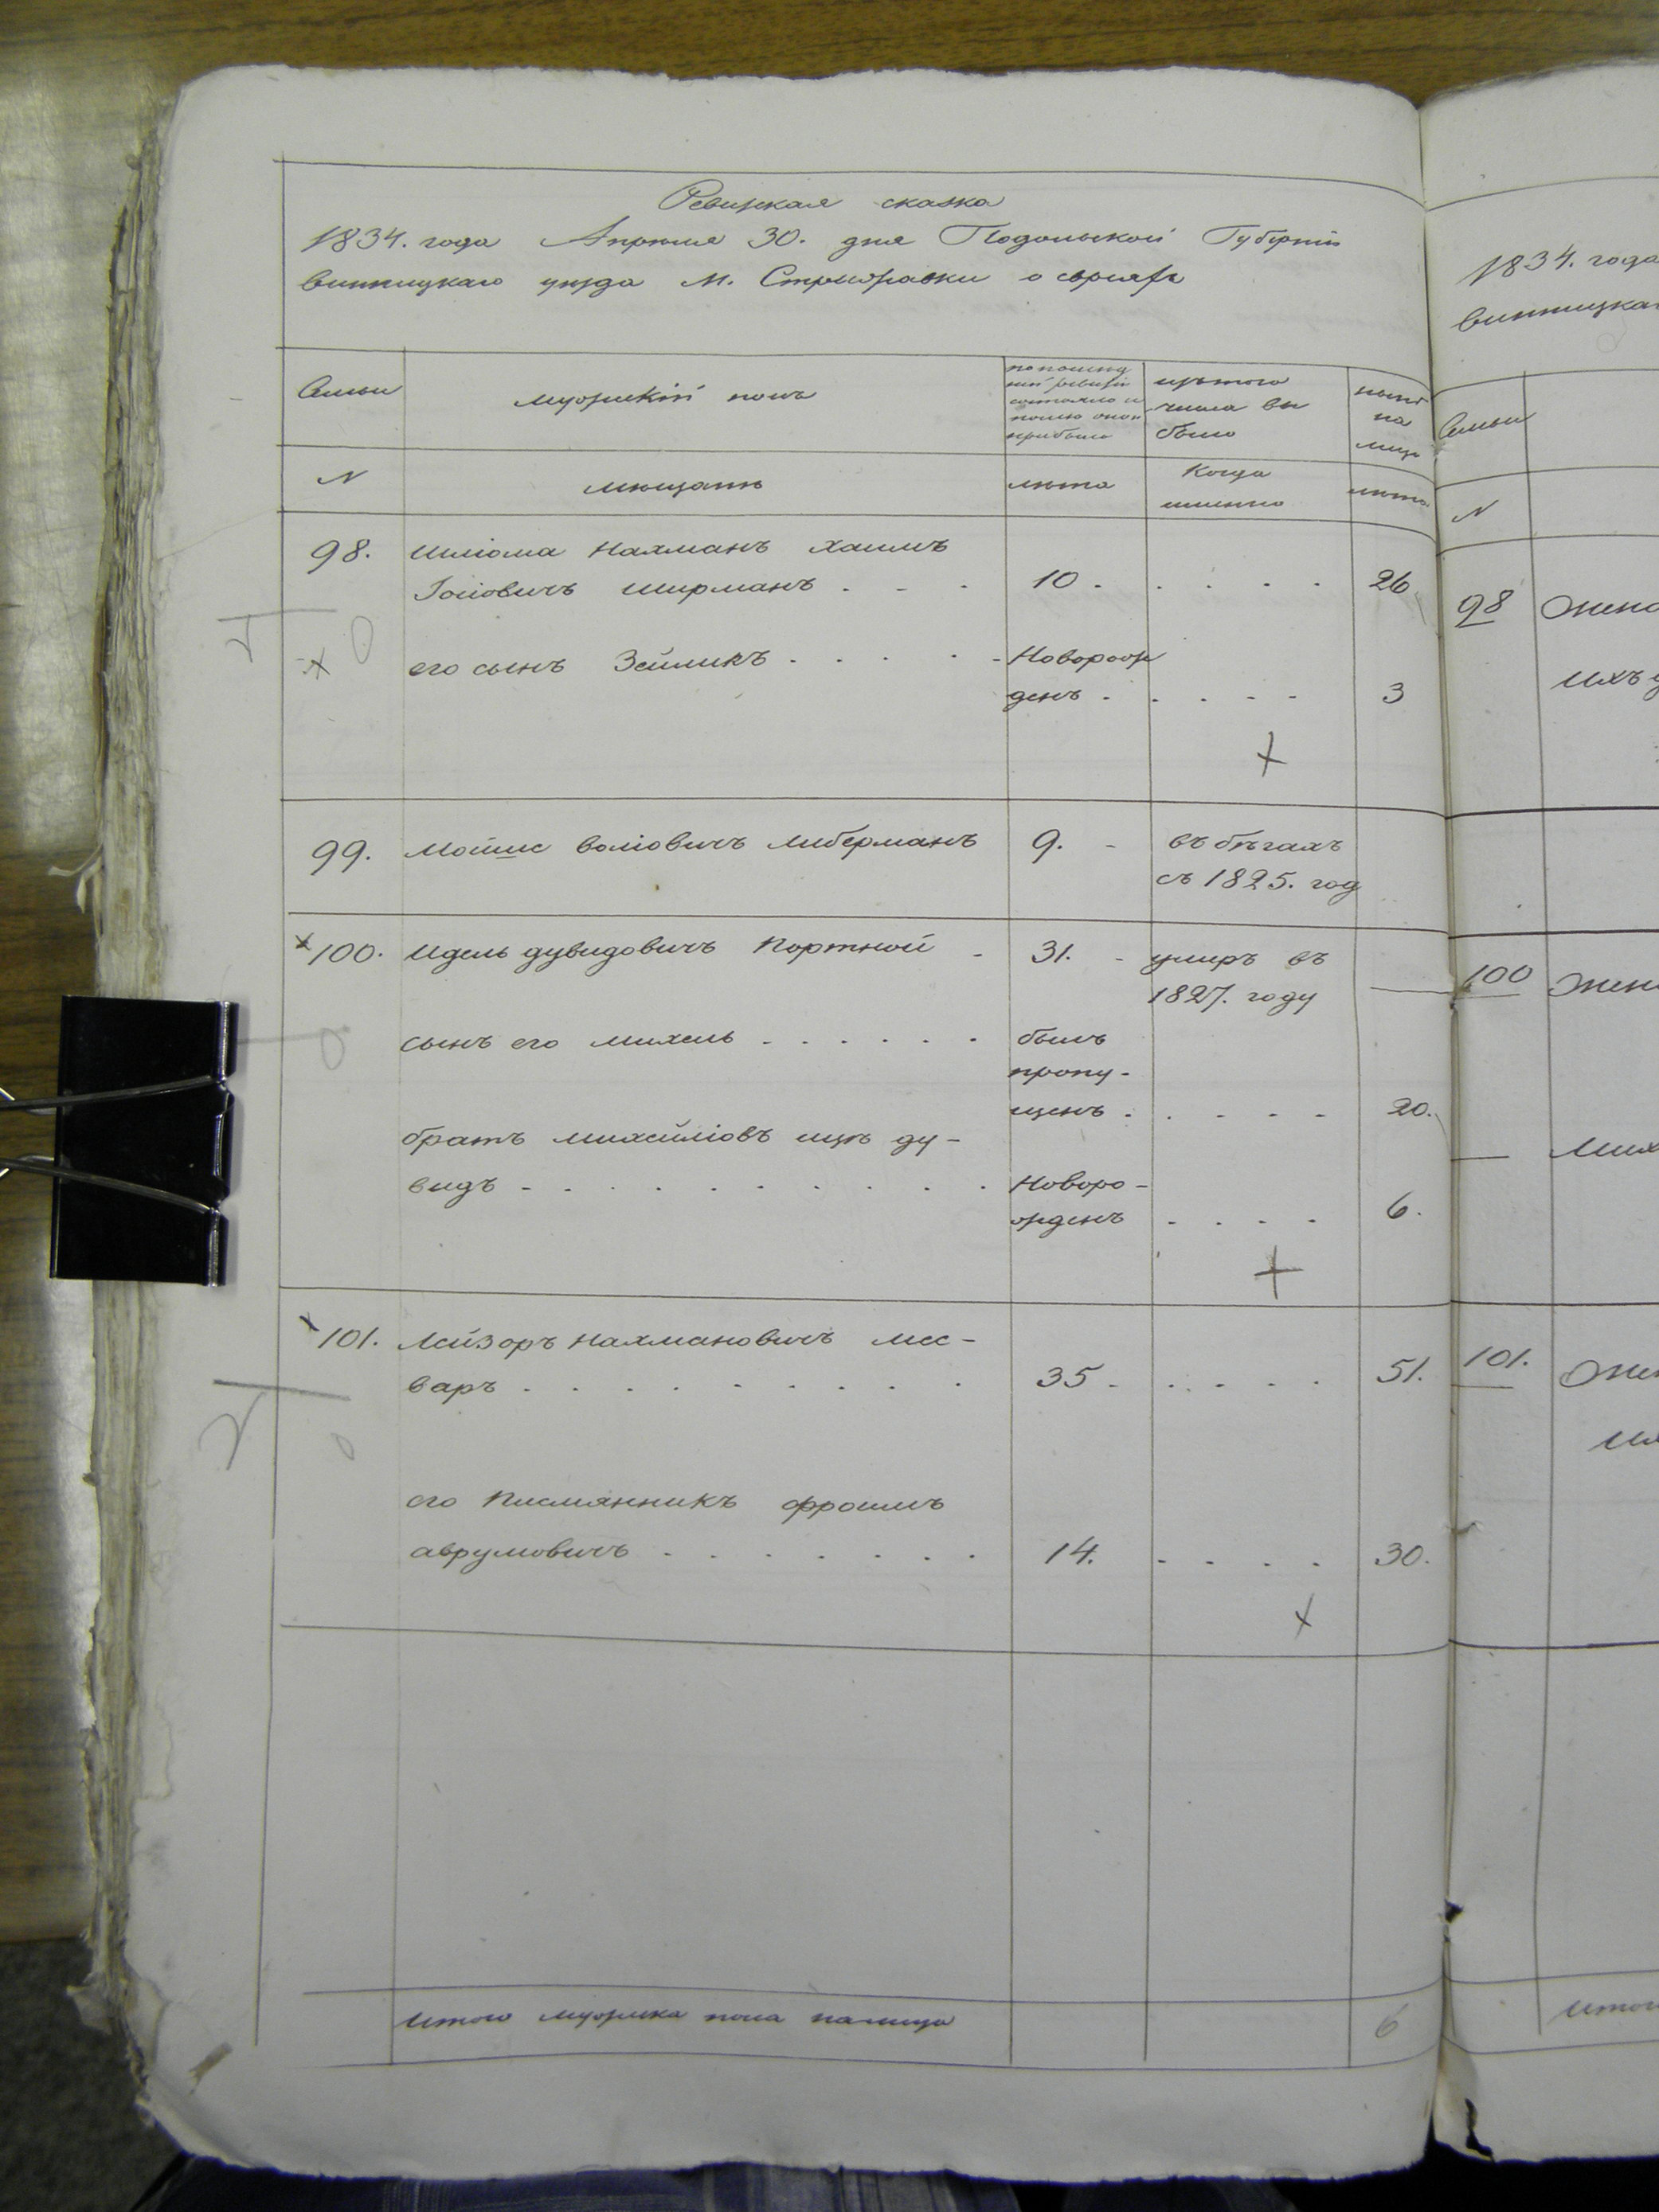 Ревизкая сказка
1834. года Апреля 30. дня Подольской Губернiи
винницкаго уезда М. Стрижавки о евреяхъ
Семьи
мужескiй полъ
по послед
ней ревизiи
состояло и
после оной
прибыло
изъ того
числа вы
было
ныне
на
лицо
N
мещане
лета
Когда
именно
лета.
98.
Шлiома Нахманъ хаимъ
Iосiовичъ ширманъ . - .
10 - . . . .
26
его сынъ Зейликъ . . . . -
Новорож
денъ - . . - -
3
99.
Мошис волiовичъ либерманъ
9. -
въ бегахъ
съ 1825. год
100.
Идель дувидовичъ Портной -
31. -
умиръ въ
1827. году
сынъ его михель - . . . . .
былъ
пропу-
щенъ . . - - -
20.
братъ михейлiовъ ицъ ду-
видъ - . . . . . . . . .
Новоро-
жденъ . . . .
6.
101.
Лейзоръ нахмановичъ лес-
варъ . . . . . . . . . .
35 - . . . .
51.
его Писмянникъ фроимъ
аврумовичъ . . . . . . .
14. . . . .
30.
итого мужеска пола налицо
6
1834. года
винницкаг
Семьи
N
98
Жена
Ихъ д
100
Жен
Мих
101.
Жен
Их
Итог